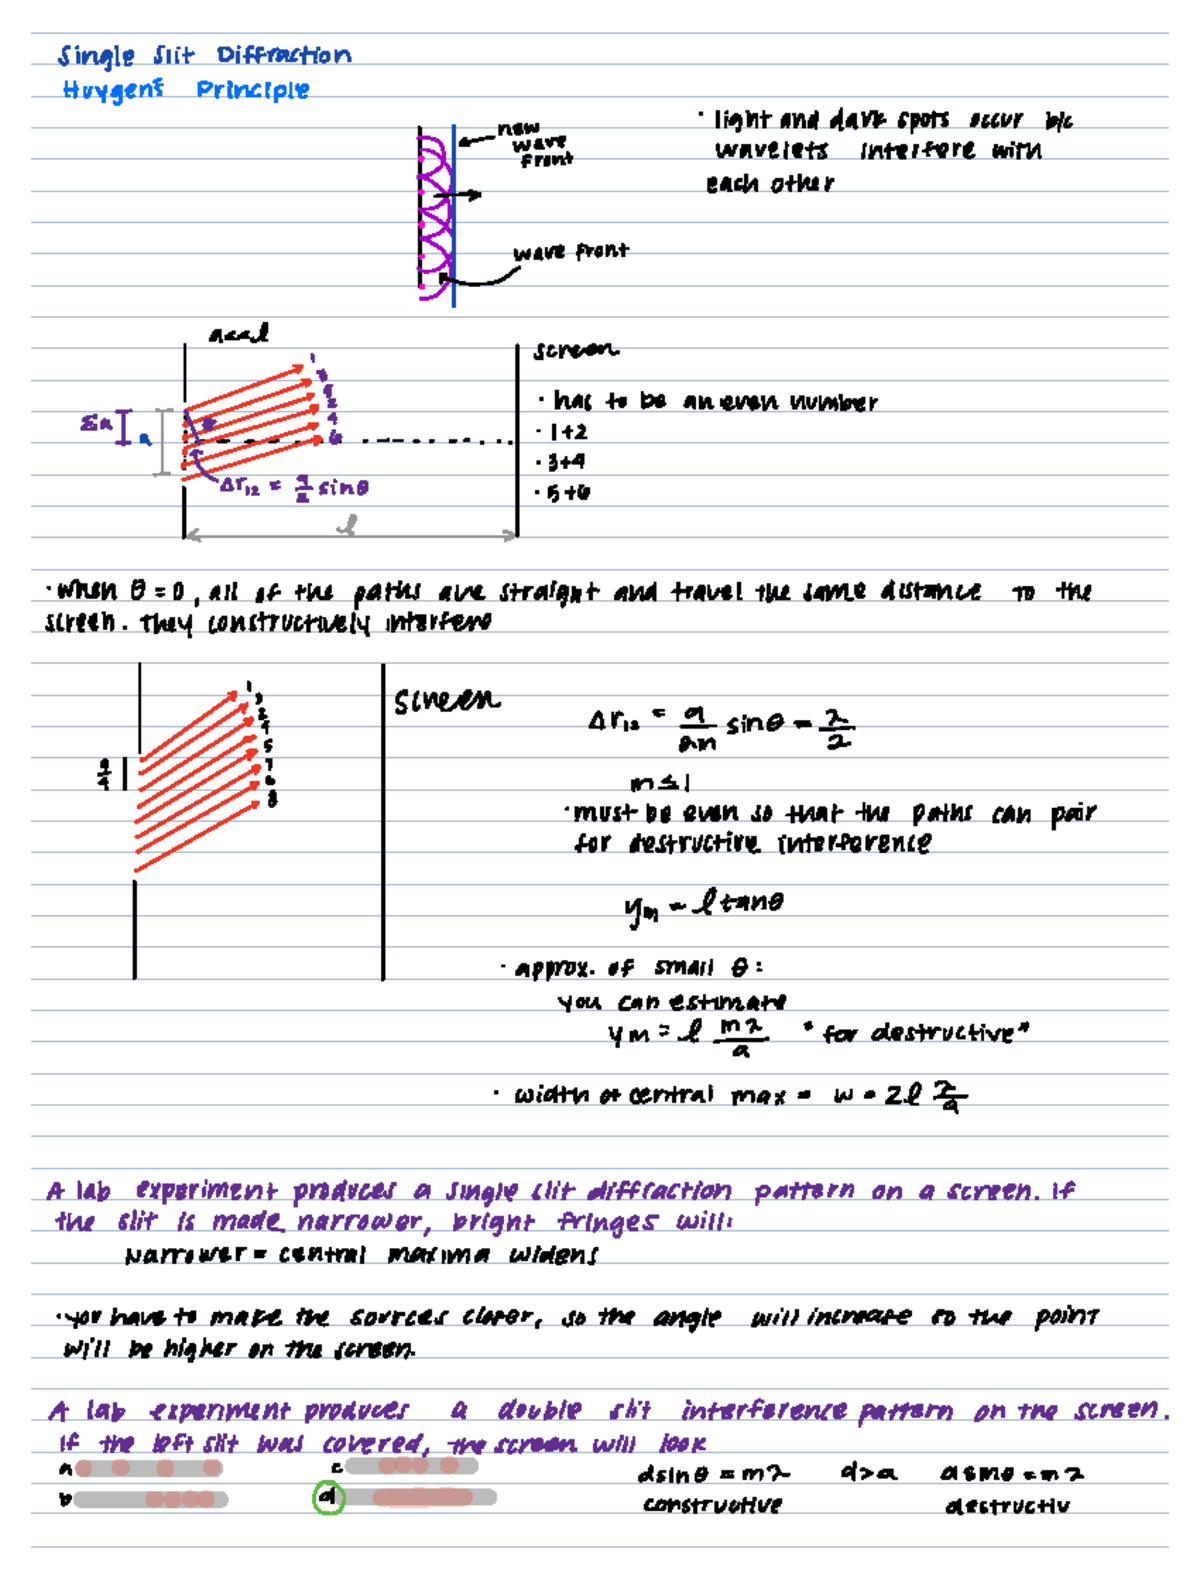 Single Slit Diffraction
Huygens Principle
new
wave
front
wave front
· light and dark spots occur b/c
wavelets interfere with
each other
a<<l
screen
· has to be an even number
· 1+2
· 3+4
· 5+6
a
Δr₁₂ = a/2 sinθ
l
· when θ = 0, all of the paths are straight and travel the same distance to the
screen. They constructively interfere
screen
a/4
1
3
2
4
5
7
6
8
Δr₁₂ = a/2m sinθ = λ/2
m ≤ 1
· must be even so that the paths can pair
for destructive interference
yₘ = l tanθ
· approx. of small θ:
you can estimate
yₘ = l mλ/a * for destructive*
· width of central max = w = 2l λ/a
A lab experiment produces a single slit diffraction pattern on a screen. If
the slit is made narrower, bright fringes will:
Narrower = central maxima widens
· you have to make the sorces closer, so the angle will increase so the point
will be higher on the screen.
A lab experiment produces a double slit interference pattern on the screen.
If the left slit was covered, the screen will look
a
c
b
d
dsinθ = mλ d>a asinθ = mλ
constructive destructiv